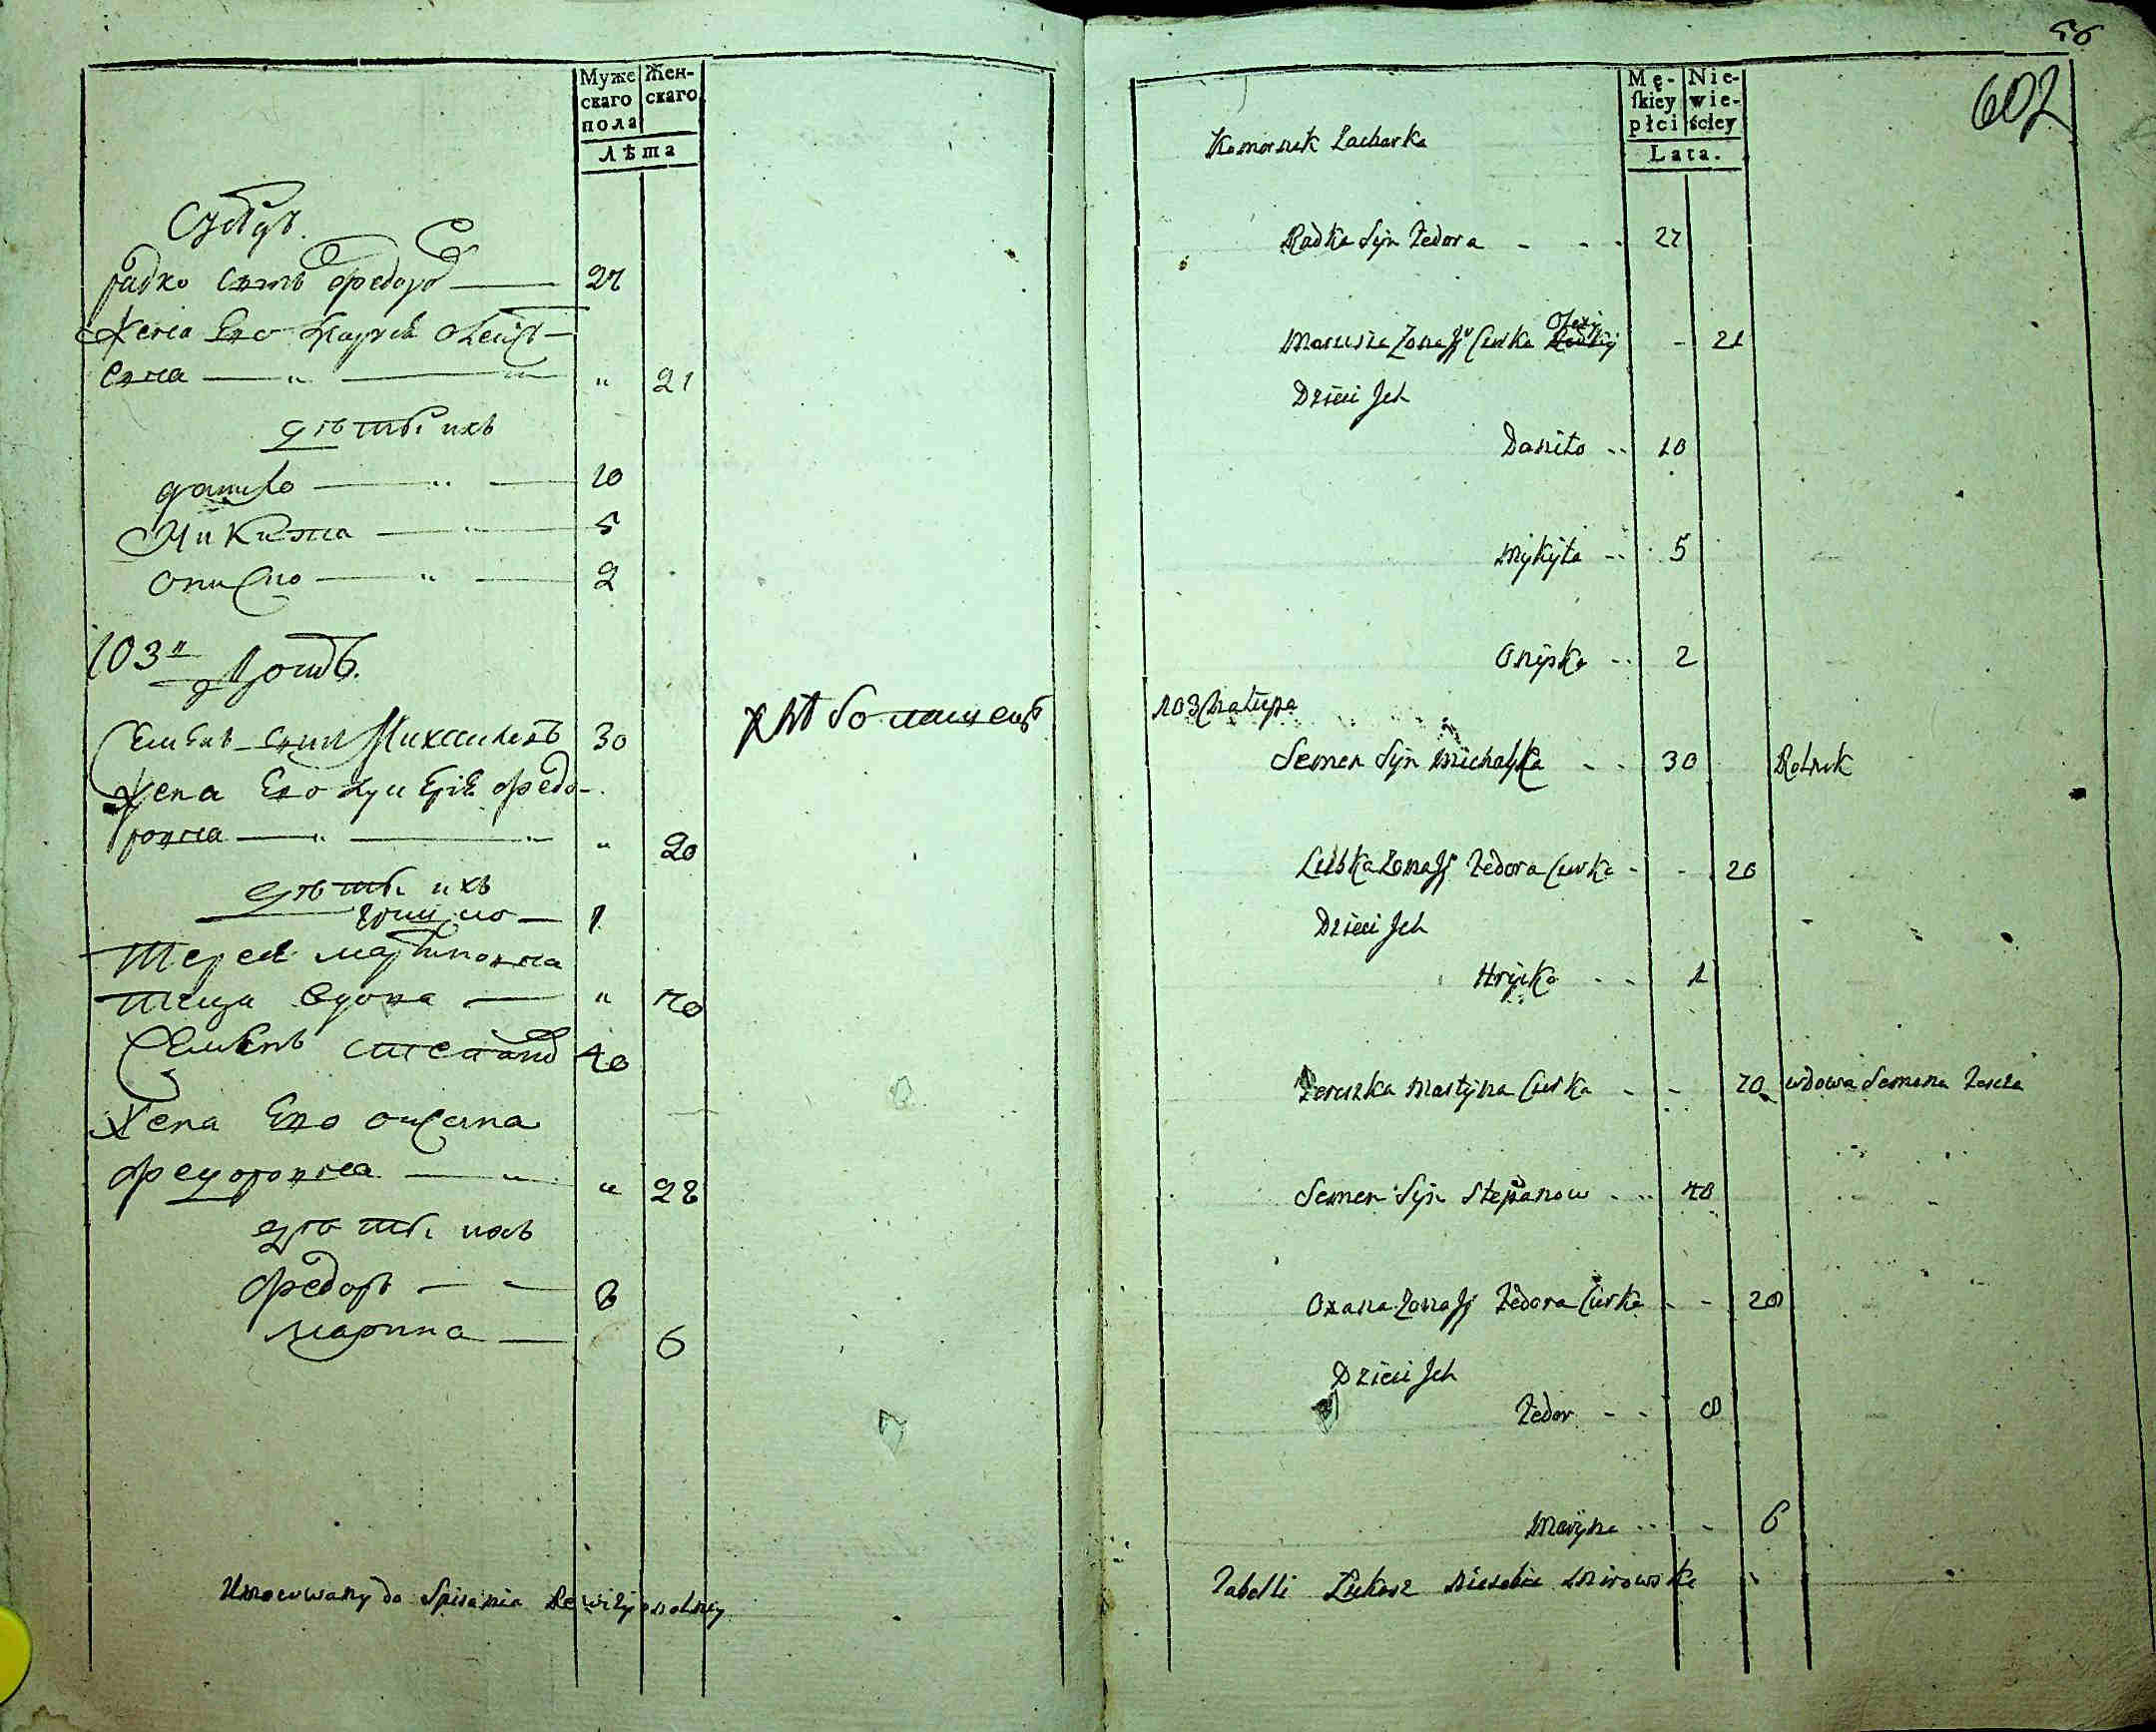 Муже
скаго
пола
Жен-
скаго
Лѣта
Сусѣдъ.
радко сынъ федора 27
Жена Его Олексѣ-
евна " 21
дѣти ихъ
данило 10
Микита 5
Ониско 2
103" Домъ.
Семенъ сынъ Михайловъ 30 хлѣбопашецъ
Жена Его федо-
ровна " 20
дѣти ихъ
грицко 1
мартиновна
теща вдова " 70
Семенъ степановъ 40
Жена Его оксана
федоровна " 28
дѣти ихъ
федоръ 8
марина 6
Umocowany do Spisania Rewizyonalney
56
602
Mę-
skiey
płci
Nie-
wie-
ściey
Lata.
Komornik Zacharka
Radko Syn Fedora 27
Marusia Zona Jº Curka Olexy 21
Dzieci Jch
Daniło 10
Mykyta 5
Onisko 2
103 Chałupa
Semen Syn Michayła 30 Rolnik
Lubka Zona Jº Fedora Curka 20
Dzieci Jch
Hryćko 1
Teruszka Martyna Curka 70 wdowa Semena Teścia
Semen Syn Stepanow 40
Oxana Zona Jº Fedora Curka 28
Dzieci Jch
Fedor 8
Maryna 6
Tabelli Łukasz